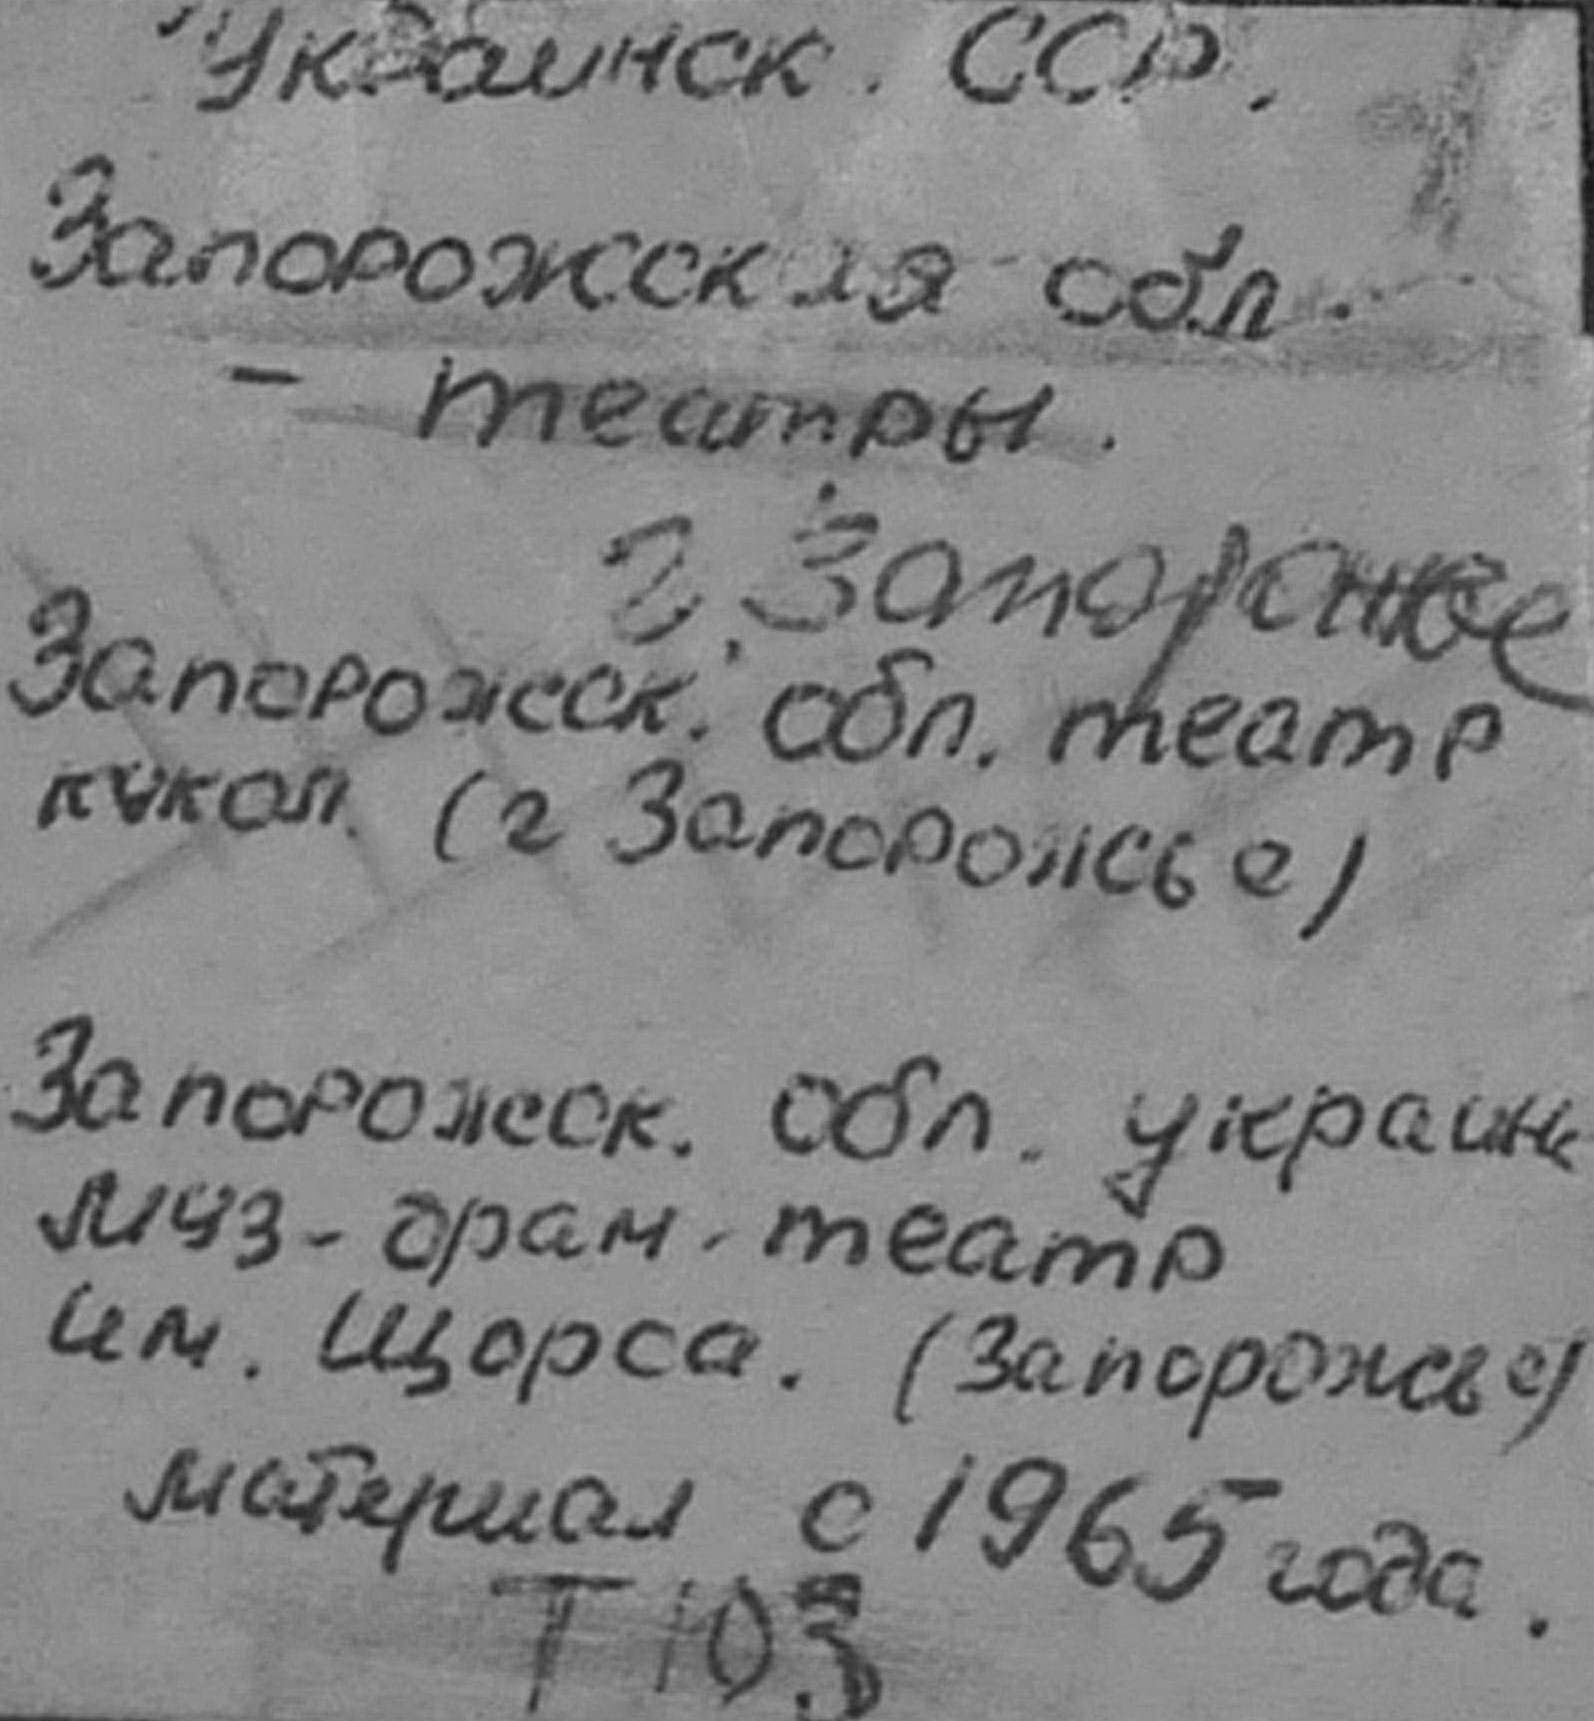 Украинск. ССР.
Запорожская обл.
- театры.
г. Запорожье
Запорожск. обл. театр
кукол. (г Запорожье)
Запорожск. обл. украин
муз-драм. театр
им. Щорса. (Запорожье)
материал с 1965 года.
ТЮЗ